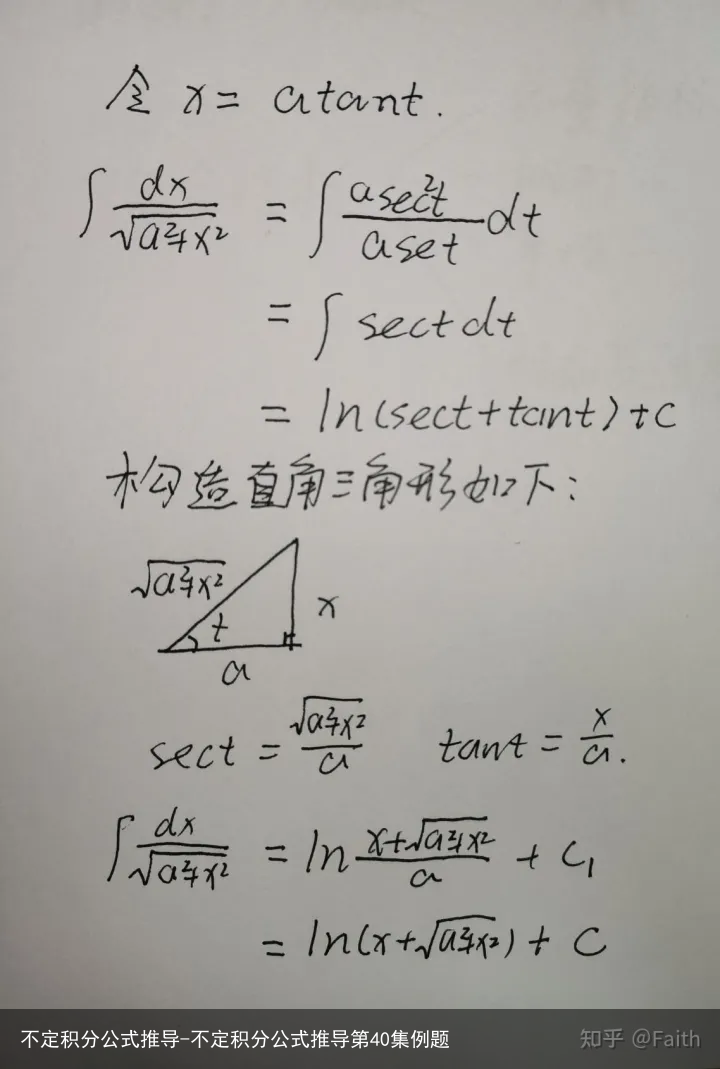 令 x = atant.
∫ dx/√(a²+x²) = ∫ asec²t/aset dt
= ∫ sect dt
= ln(sect+tant)+C
构造直角三角形如下:
√(a²+x²)
t
x
a
sect = √(a²+x²)/a  tant = x/a.
∫ dx/√(a²+x²) = ln (x+√(a²+x²))/a + C₁
= ln(x+√(a²+x²)) + C
不定积分公式推导-不定积分公式推导第40集例题
知乎 @Faith